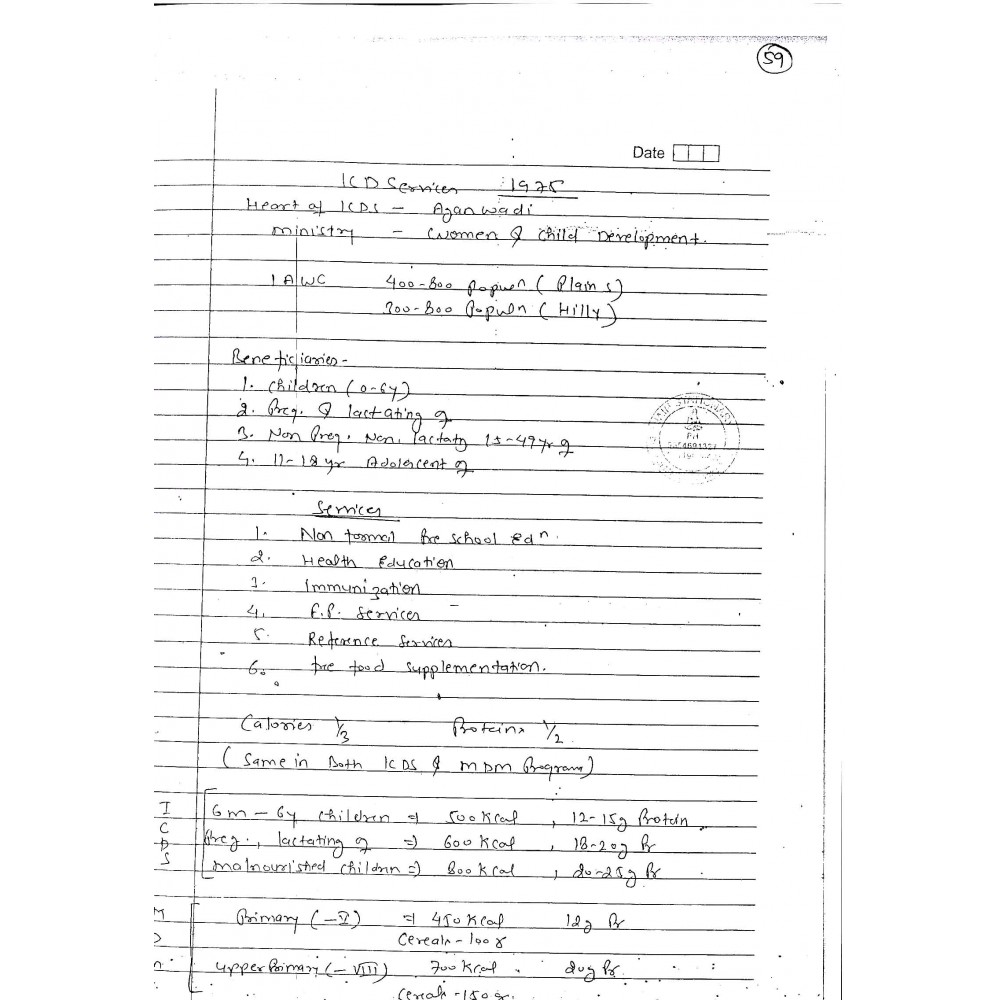 59
Date
ICD Services : 1975
Heart of ICDS - Aganwadi
Ministry - Women & Child Development.
1 AWC 400-800 Populn (Plains)
300-800 Populn (Hilly)
Beneficiaries -
1. Children (0-6y)
2. Preg. & lactating ♀
3. Non Preg. Non. lactaty 15-49yr ♀
4. 11-18 yr Adolescent ♀
Services
1. Non formal Pre school edn.
2. Health Education
3. Immunization
4. F.P. Services
5. Reference Services
6. Free food supplementation.
Calories 1/3 Proteins 1/2
(Same in Both ICDS & MDM Program)
ICDS
6m - 6y children => 500 Kcal, 12-15g Protein
Preg., lactating ♀ => 600 Kcal, 18-20g Pr
malnourished children => 800 Kcal, 20-25g Pr
Primary (-V) => 450 Kcal 12g Pr
Cereals - 100g
Upper Primary (-VIII) 700 Kcal. 20g Pr.
Cereals - 150g.